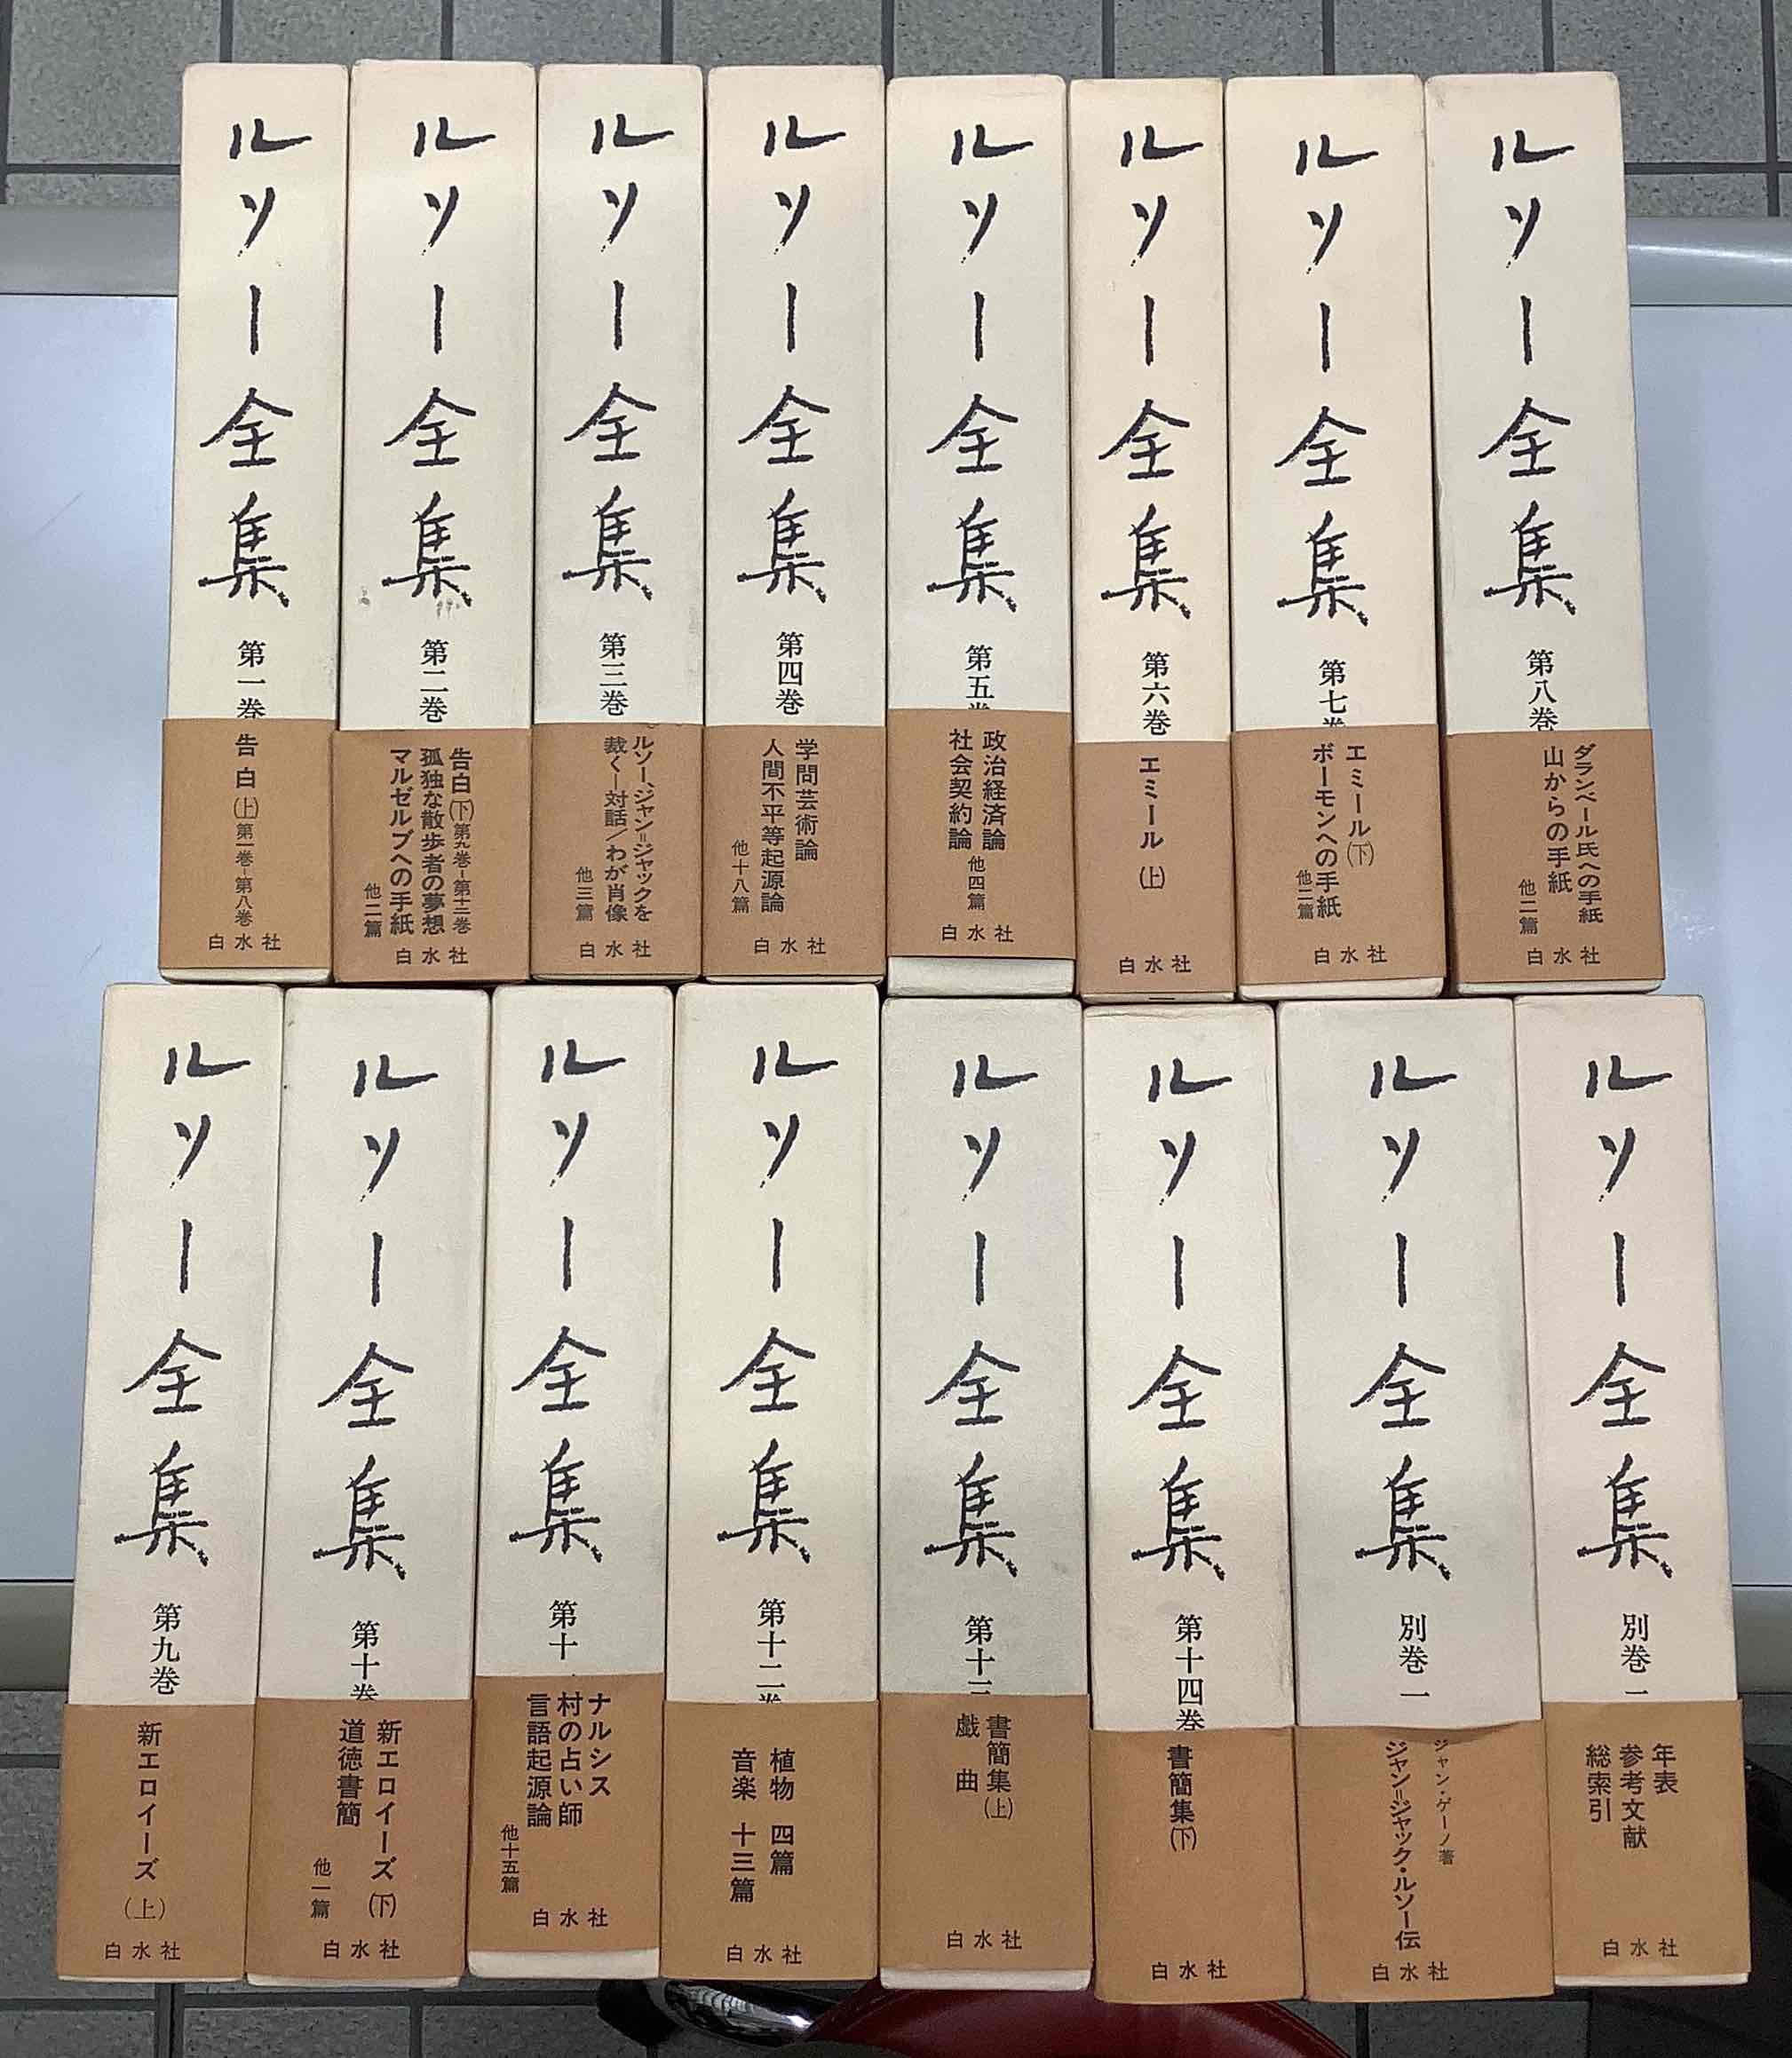 ルソー全集
第一巻
告白(上)第一巻-第八巻
白水社
ルソー全集
第二巻
告白(下)第九巻-第十二巻
孤独な散歩者の夢想
マルゼルブへの手紙
他二篇
白水社
ルソー全集
第三巻
ルソー、ジャン=ジャックを
裁く―対話/わが肖像
他三篇
白水社
ルソー全集
第四巻
学問芸術論
人間不平等起源論
他十八篇
白水社
ルソー全集
第五巻
政治経済論
社会契約論
他四篇
白水社
ルソー全集
第六巻
エミール(上)
白水社
ルソー全集
第七巻
エミール(下)
ボーモンへの手紙
他二篇
白水社
ルソー全集
第八巻
ダランベール氏への手紙
山からの手紙
他二篇
白水社
ルソー全集
第九巻
新エロイーズ(上)
白水社
ルソー全集
第十巻
新エロイーズ(下)
道徳書簡
他一篇
白水社
ルソー全集
第十
ナルシス
村の占い師
言語起源論
他十五篇
白水社
ルソー全集
第十二巻
植物 四篇
音楽 十三篇
白水社
ルソー全集
第十三
書簡集(上)
戯曲
白水社
ルソー全集
第十四巻
書簡集(下)
白水社
ルソー全集
別巻一
ジャン・ゲーノ著
ジャン=ジャック・ルソー伝
白水社
ルソー全集
別巻
年表
参考文献
総索引
白水社